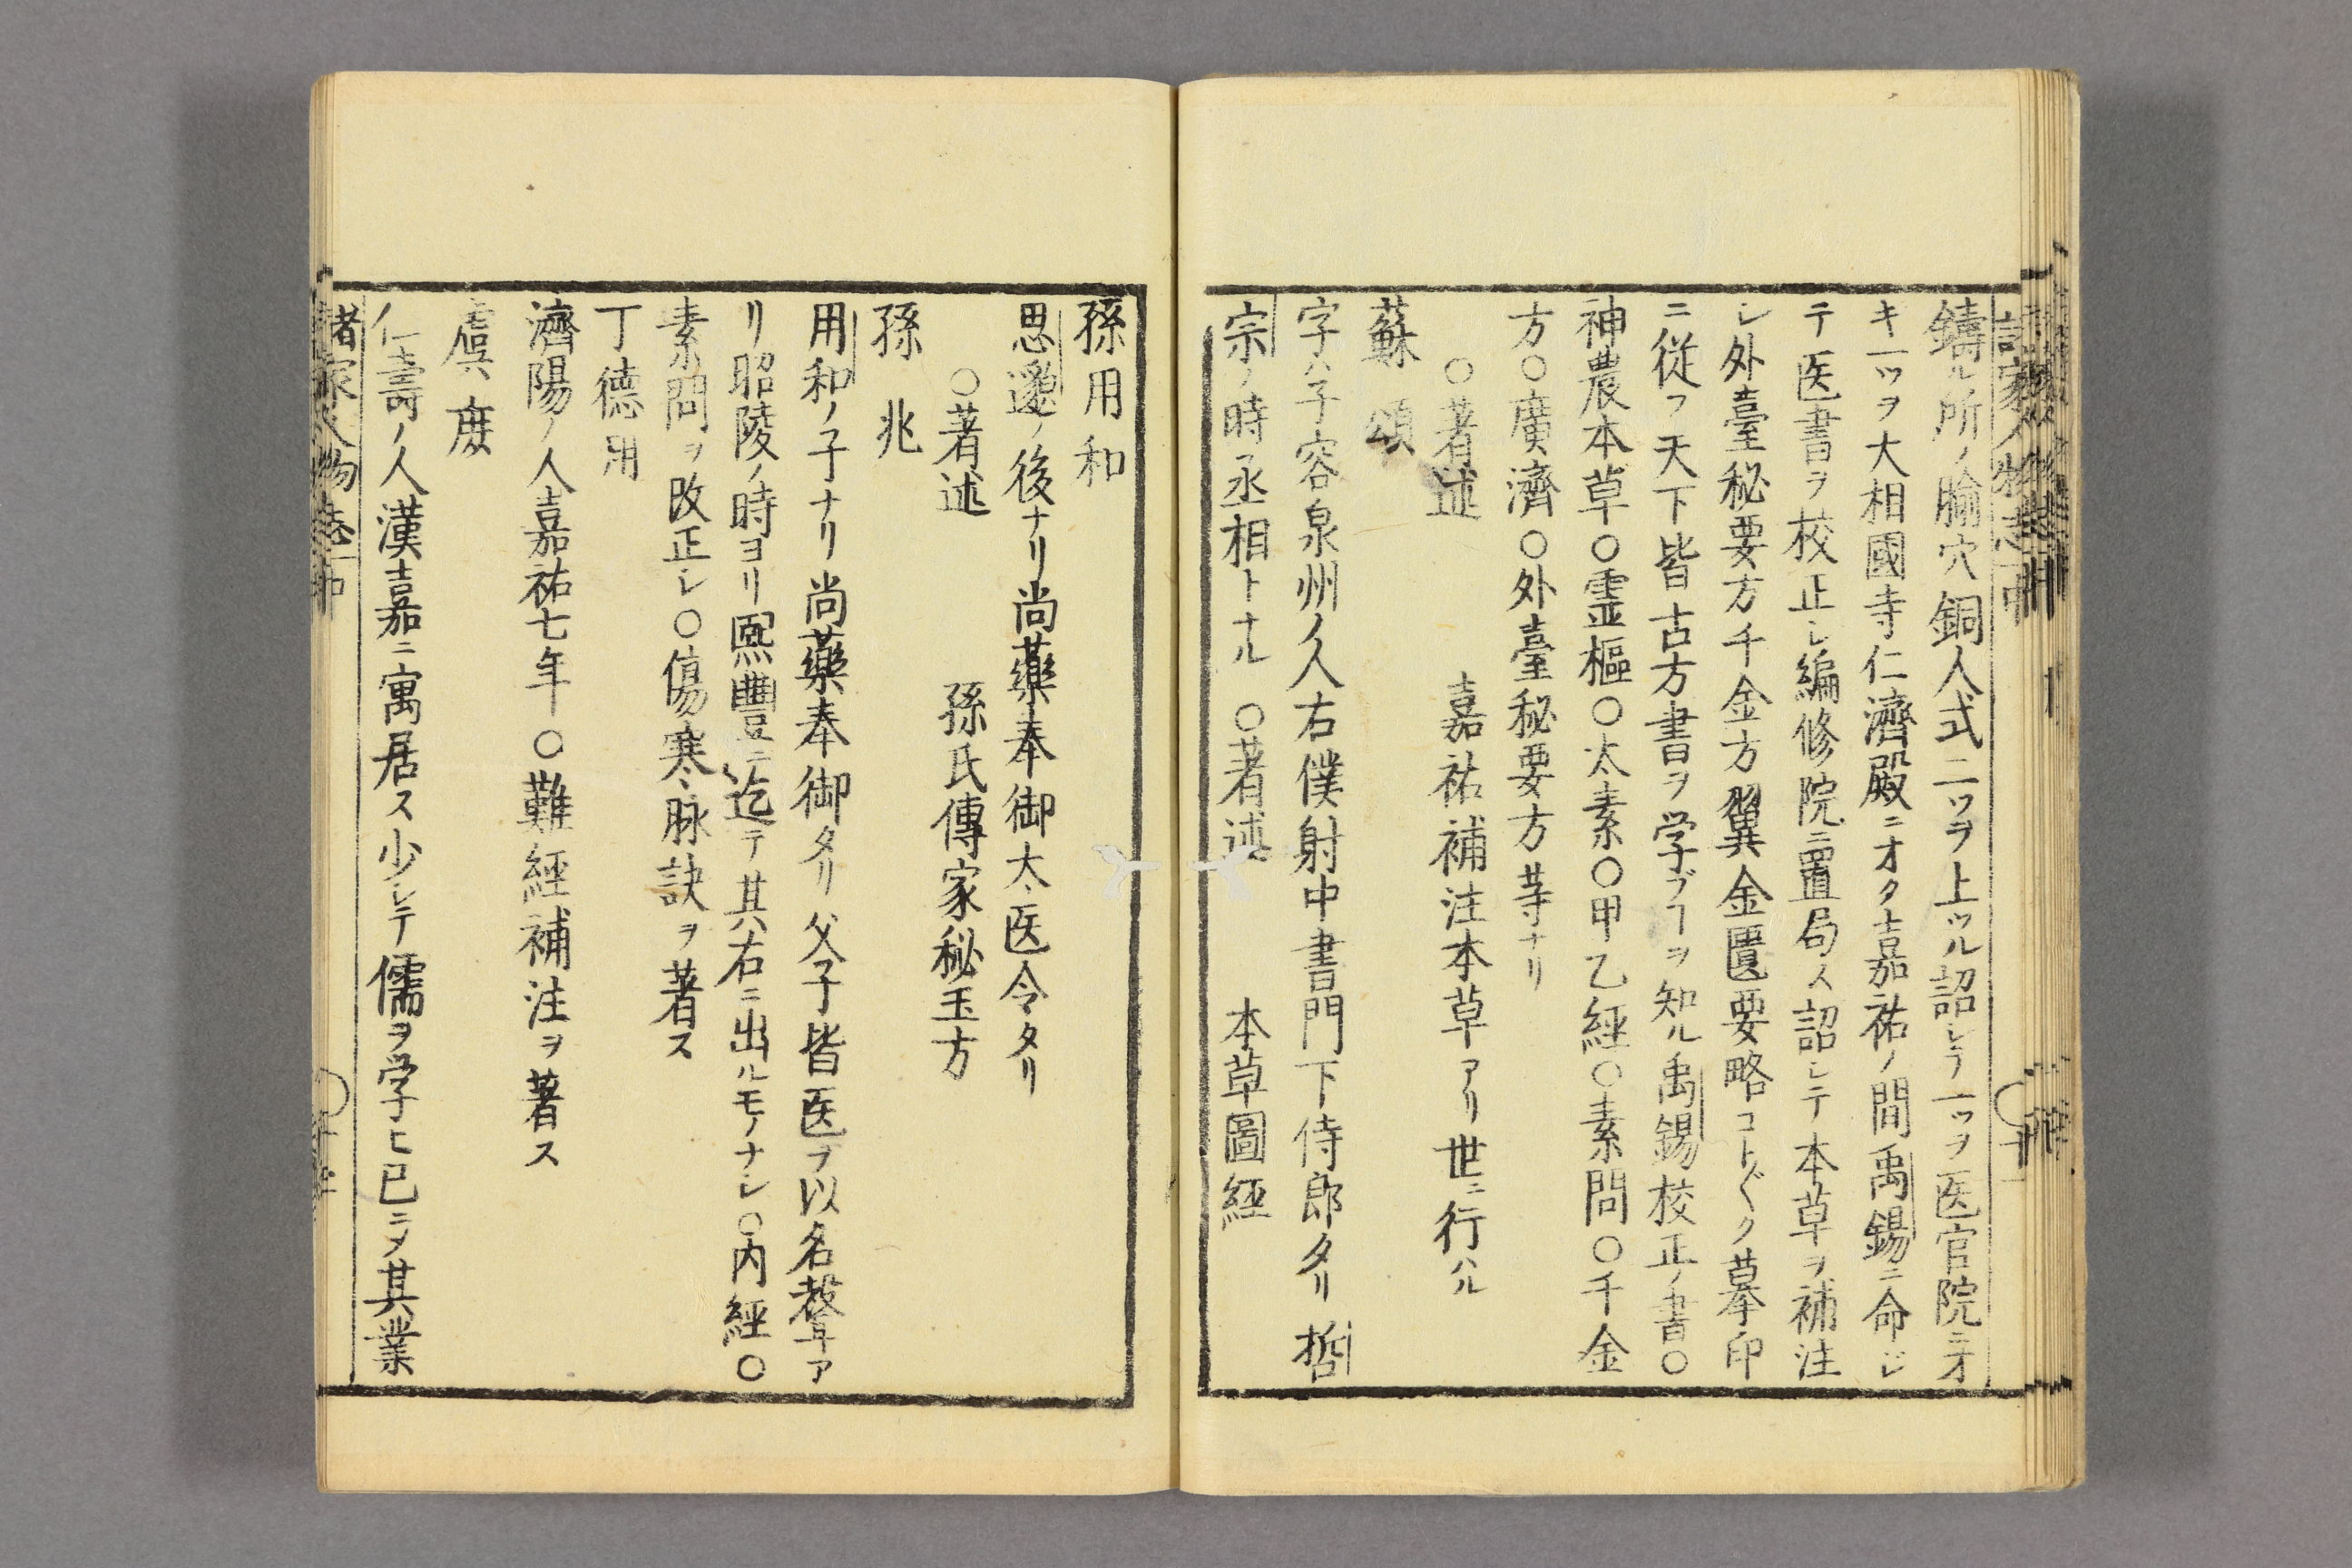 諸家人物志 中
鑄ル所ノ腧穴銅人式二ツヲ上ツル詔シテ一ツヲ医官院ニオ
キ一ツヲ大相國寺仁濟殿ニオク嘉祐ノ間禹錫ニ命ジ
テ医書ヲ校正シ編修院ニ置局ス詔シテ本草ヲ補注
シ外臺秘要方千金方翼金匱要略コト〲ク摹印
ニ従フ天下皆古方書ヲ学ブヿヲ知ル禹錫校正ノ書○
神農本草○霊樞○太素○甲乙經○素問○千金
方○廣濟○外臺秘要方䓁ナリ
○著述 嘉祐補注本草アリ世ニ行ハル
蘇頌
字ハ子容泉州ノ人右僕射中書門下侍郎タリ哲
宗ノ時丞相トナル ○著述 本草圖經
孫用和
思邈ノ後ナリ尚藥奉御大医令タリ
○著述 孫氏傳家秘玉方
孫兆
用和ノ子ナリ尚藥奉御タリ父子皆医ヲ以名聲ア
リ昭陵ノ時ヨリ熙豐ニ迄テ其右ニ出ルモノナシ○内經○
素問ヲ改正シ○傷寒脉訣ヲ著ス
丁德用
濟陽ノ人嘉祐七年○難經補注ヲ著ス
虞庻
仁壽ノ人漢嘉ニ寓居ス少シテ儒ヲ学ヒ已ニメ其業
諸家人物志 中